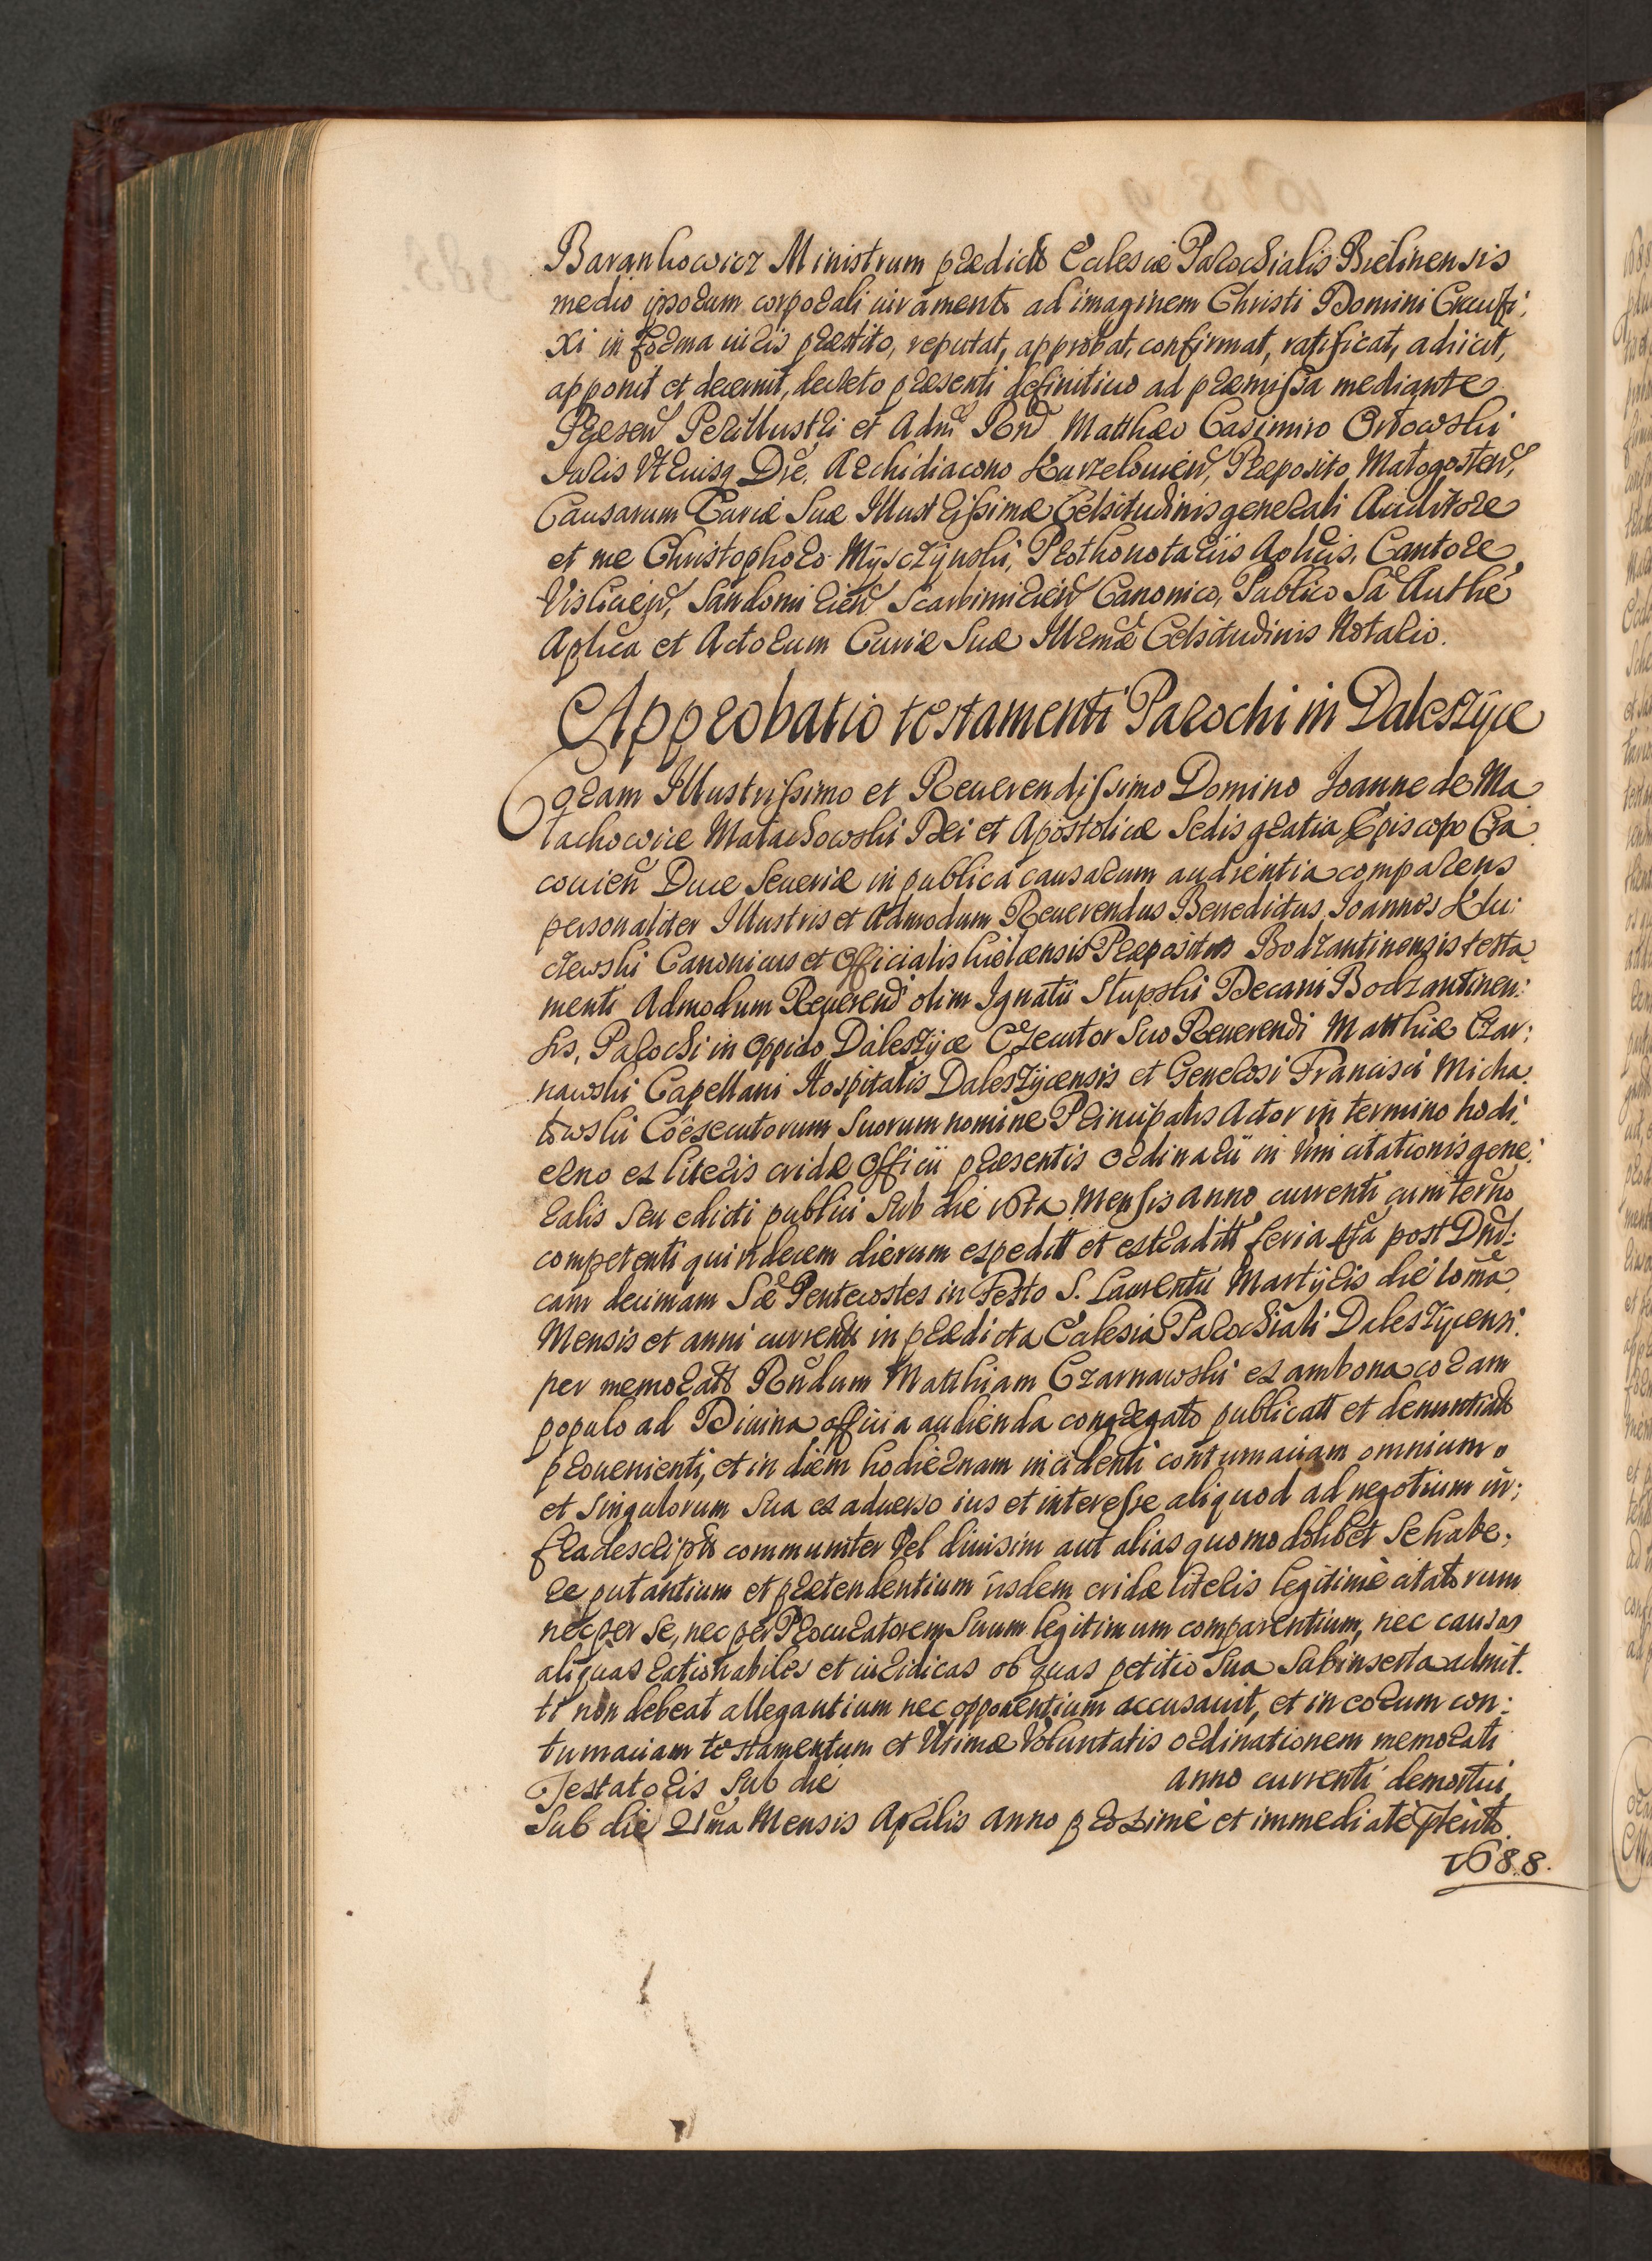 Barankowicz Ministrum prædictæ Ecclesiæ Parochialis Bielinensis
medio ipsorum corporali iuramento ad imaginem Christi Domini Crucifi:
xi in forma iuris præstito, reputat, approbat, confirmat, ratificat, adiicit,
apponit et decernit, decreto præsenti definitiuo ad præmissa mediante
Præsen Perillustri et Adm Rnd Matthæo Casimiro Orłowski
Juris Vtriusq Dre, Archidiacono Kurzelouien, Præposito Małogosten,
Causarum Curiæ Suæ Illustrissimæ Celsitudinis generali Auditore
et me Christophoro Myszczynski, Prothonotariis Aplicis, Cantore
Vislicien, Sandomirien Scarbimirien Canonico, Publico Sa Authe
Aplica et Actorum Curiæ Suæ Illrmæ Celsitudinis Notario.
Approbatio testamenti Parochi in Daleszyce
Coram Illustrissimo et Reuerendissimo Domino Joanne de Ma
łachowice Małachowski Dei et Apostolicæ Sedis gratia Episcopo Cra
couien Duce Seueriæ in publica causarum audientia comparens
personaliter Illustris et Admodum Reuerendus Benedictus Joannes Klu:
czewski Canonicus et Officialis Kielcensis Præpositus Bodzantinensis testa
menti Admodum Reuerend olim Ignatii Słupski Decani Bodzantinen:
sis, Parochi in Oppido Daleszyce Executor Suo Reuerendi Matthiæ Czar:
nawski Capellani Hospitalis Daleszycensis et Generosi Francisci Micha
łowski Coexecutorum Suorum nomine Principalis Actor in termino hodi
erno ex literis cridæ Officii præsentis Ordinarii in vim citationis gene:
ralis seu edicti publici Sub die 16ta Mensis anno currenti cum termo
competenti quindecem dierum expeditt et extraditt feria post Dni:
cam decimam Sæ Pentecostes in Festo S. Laurentii Martyris die 10ma
Mensis et anni currentt in prædicta Ecclesia Parochiali Daleszycensi
per memoratt Rndum Matthiam Czarnawski ex ambona coram
populo ad Diuina officia audienda congregato publicatt et denuntiatt
prouenienti, et in diem hodiernam incidenti contumaciam omnium
et singulorum Sua ex aduerso ius et interesse aliquod ad negotium in:
fradescriptt communiter vel diuisim aut alias quomodolibet se habe:
re putantium et prætendentium iisdem cridæ literis legitime citatorum
nec per se, nec per Procuratorem Suum legitimum comparentium, nec causas
aliquas rationabiles et iuridicas ob quas petitio Sua Subinserta admit.
ti non debeat allegantium nec opponentium accusauit, et in eorum con:
tumaciam testamentum et Vltimæ Voluntatis ordinationem memorati
Testatoris Sub die anno currenti demortui
Sub die 21ma Mensis Aprilis anno proxime et immediate præterito
1688.